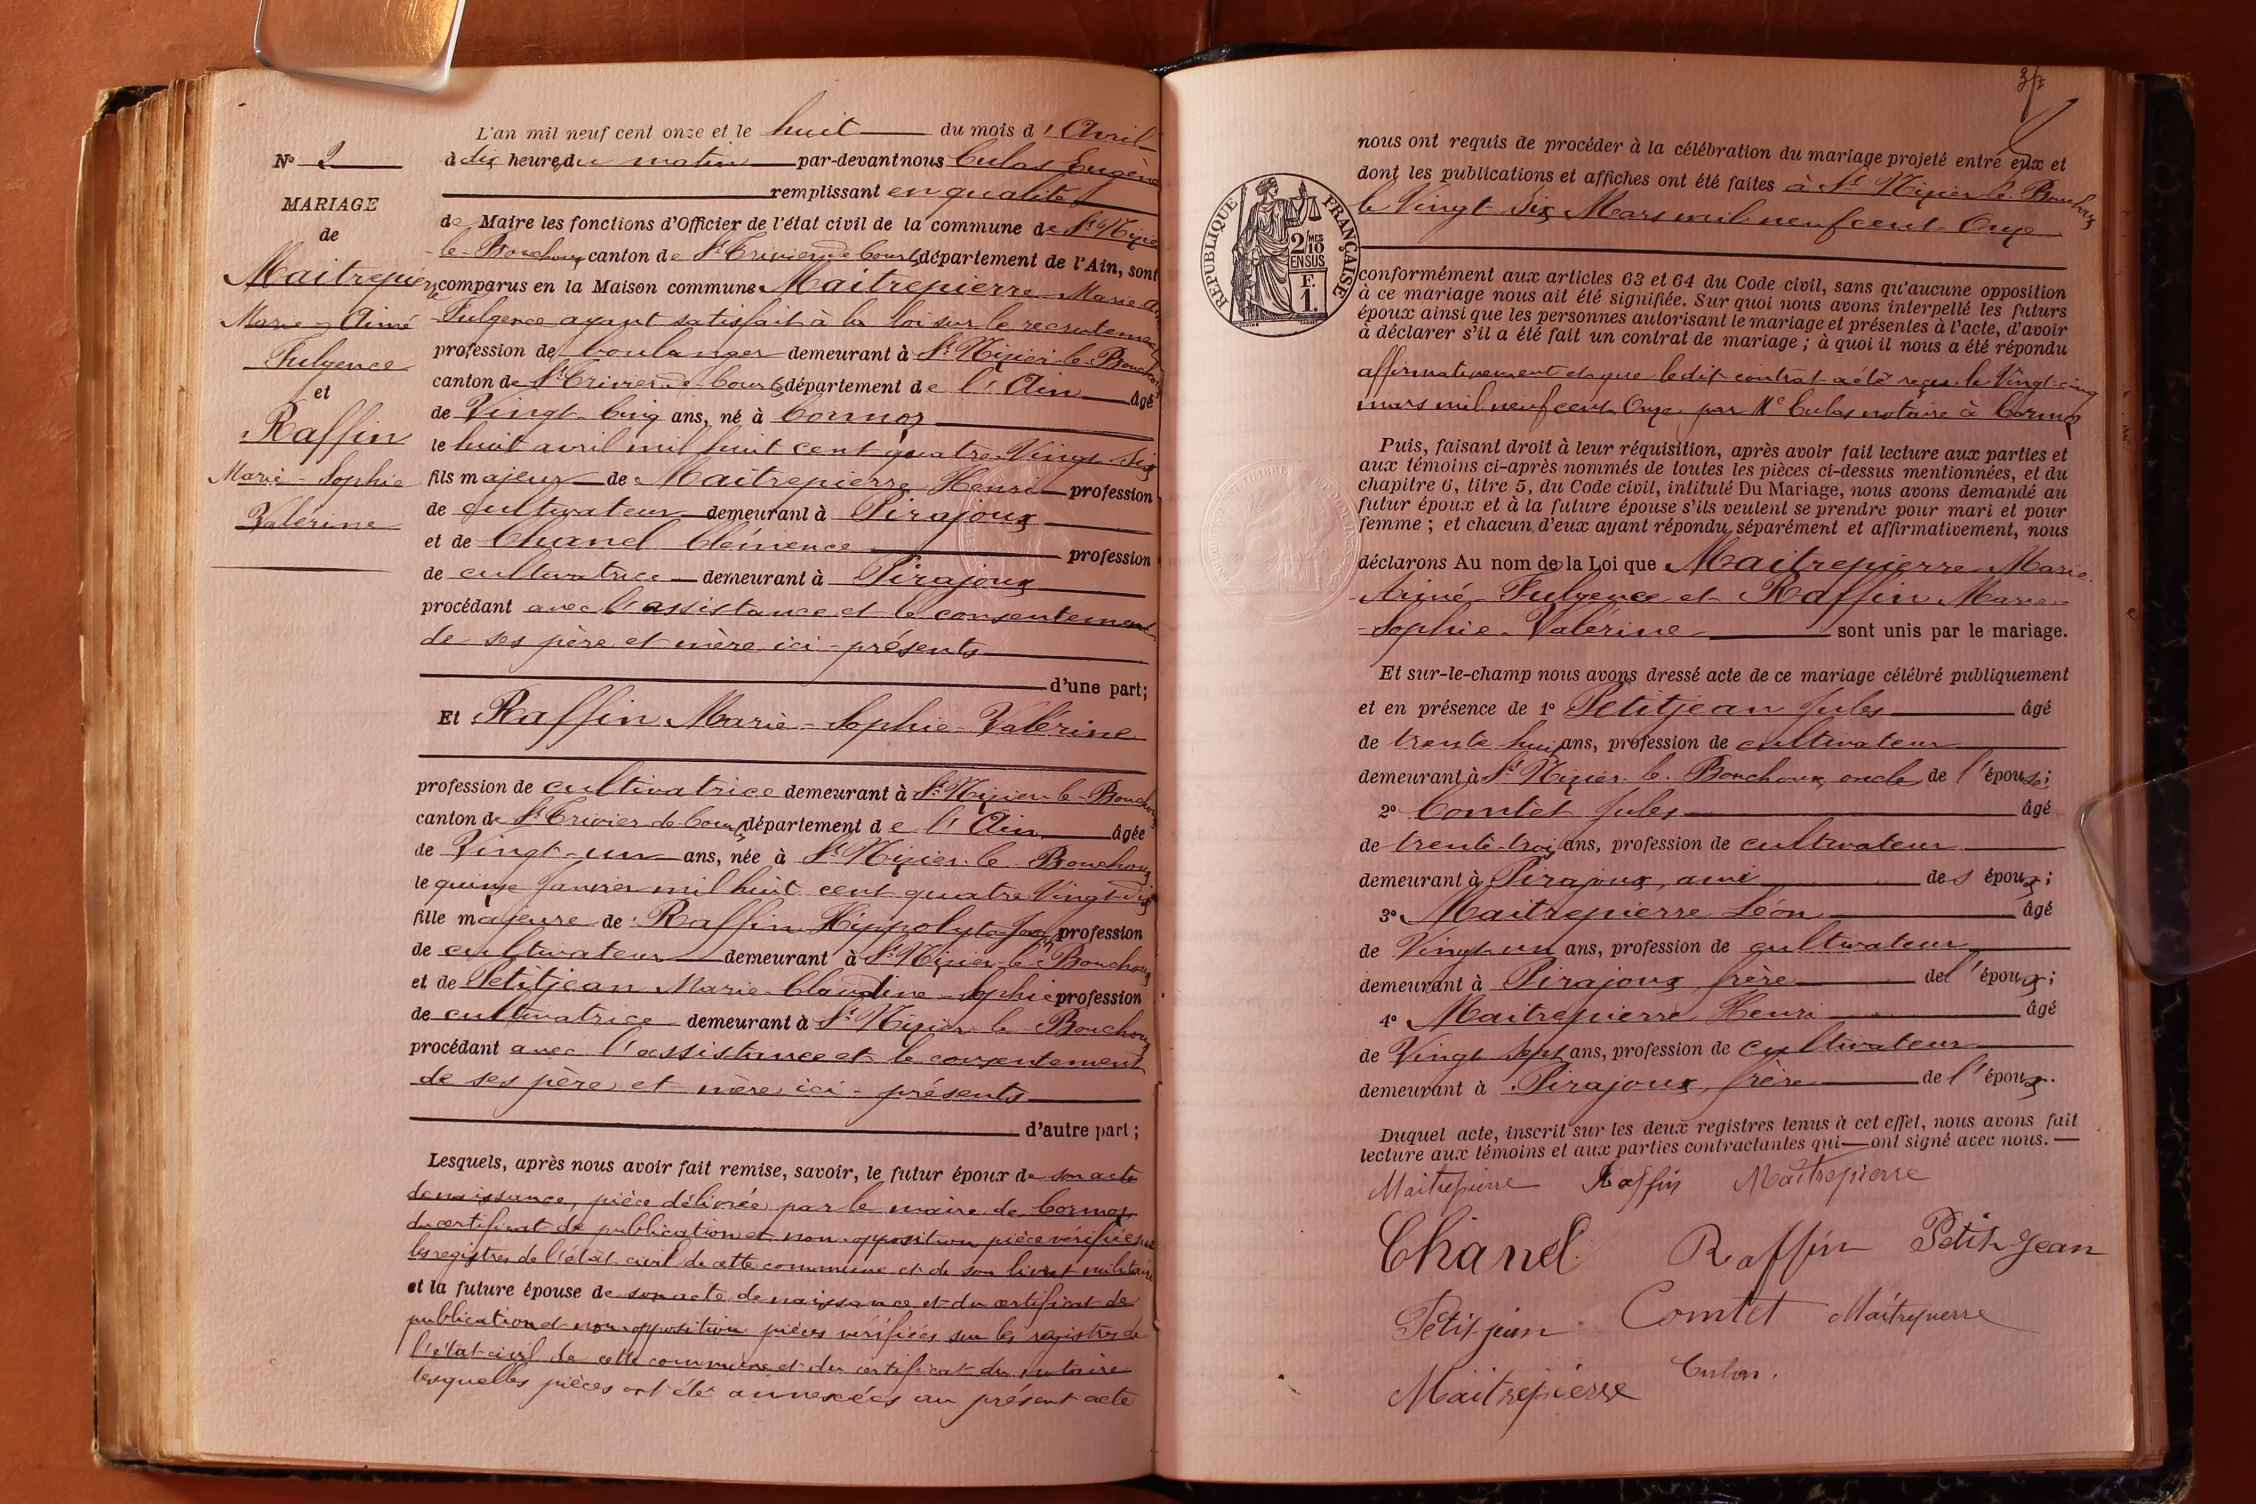 N° 2
MARIAGE
de
Maitrepierre
Marie-Aimé
Fulgence
et
Raffin
Marie-Sophie
Valérine
L'an mil neuf cent onze et le huit du mois d'Avril
à Six heures du matin par-devant nous Culas Eugène
remplissant en qualité
de Maire les fonctions d'Officier de l'état civil de la commune de St Nizier
le-Bouchoux canton de St Trivier de Courtes département de l'Ain, sont
comparus en la Maison commune Maitrepierre Marie Aimé
Fulgence ayant satisfait à la loi sur le recrutement
profession de boulanger demeurant à St Nizier-le-Bouchoux
canton de St Trivier de Courtes département de l'Ain âgé
de Vingt Cinq ans, né à Cormoz
le huit avril mil huit cent quatre Vingt Six
fils majeur de Maitrepierre Henri profession
de cultivateur demeurant à Pirajoux
et de Chanel Clémence profession
de cultivatrice demeurant à Pirajoux
procédant avec l'assistance et le consentement
de ses père et mère ici-présents
d'une part;
Et Raffin Marie-Sophie-Valérine
profession de cultivatrice demeurant à St Nizier-le-Bouchoux
canton de St Trivier de Courtes département de l'Ain âgée
de Vingt-un ans, née à St Nizier-le-Bouchoux
le quinze Janvier mil huit cent quatre Vingt-dix
fille majeure de Raffin Hippolyte profession
de cultivateur demeurant à St Nizier-le-Bouchoux
et de Petitjean Marie-Claudine-Sophie profession
de cultivatrice demeurant à St Nizier-le-Bouchoux
procédant avec l'assistance et le consentement
de ses père et mère ici-présents
d'autre part;
Lesquels, après nous avoir fait remise, savoir, le futur époux de son acte
de naissance, pièce délivrée par le maire de Cormoz,
du certificat de publication et non opposition pièce vérifiée sur
les registres de l'état civil de cette commune et de son livret militaire
et la future épouse de son acte de naissance et du certificat de
publication et non opposition pièces vérifiées sur les registres de
l'état-civil de cette commune et du certificat du notaire
lesquelles pièces ont été annexées au présent acte
nous ont requis de procéder à la célébration du mariage projeté entre eux et
dont les publications et affiches ont été faites à St Nizier-le-Bouchoux
le Vingt Six Mars mil neuf cent Onze
RÉPUBLIQUE FRANÇAISE
2/10 MES
EN SUS
F.
1.
conformément aux articles 63 et 64 du Code civil, sans qu'aucune opposition
à ce mariage nous ait été signifiée. Sur quoi nous avons interpellé les futurs
époux ainsi que les personnes autorisant le mariage et présentes à l'acte, d'avoir
à déclarer s'il a été fait un contrat de mariage; à quoi il nous a été répondu
affirmativement et que ledit contrat a été reçu le Vingt-cinq
mars mil neuf cent Onze par Me Culas notaire à Cormoz
Puis, faisant droit à leur réquisition, après avoir fait lecture aux parties et
aux témoins ci-après nommés de toutes les pièces ci-dessus mentionnées, et du
chapitre 6, titre 5, du Code civil, intitulé Du Mariage, nous avons demandé au
futur époux et à la future épouse s'ils veulent se prendre pour mari et pour
femme; et chacun d'eux ayant répondu séparément et affirmativement, nous
déclarons Au nom de la Loi que Maitrepierre Marie-
Aimé-Fulgence et Raffin Marie-
Sophie-Valérine sont unis par le mariage.
Et sur-le-champ nous avons dressé acte de ce mariage célébré publiquement
et en présence de 1° Petitjean Jules âgé
de trente huit ans, profession de cultivateur
demeurant à St Nizier-le-Bouchoux, oncle de l'épouse;
2° Comtet Jules âgé
de trente-trois ans, profession de cultivateur
demeurant à Pirajoux, ami des époux;
3° Maitrepierre Léon âgé
de Vingt un ans, profession de cultivateur
demeurant à Pirajoux, frère de l'époux;
4° Maitrepierre Henri âgé
de Vingt Sept ans, profession de cultivateur
demeurant à Pirajoux, frère de l'époux.
Duquel acte, inscrit sur les deux registres tenus à cet effet, nous avons fait
lecture aux témoins et aux parties contractantes qui ont signé avec nous.
Maitrepierre Raffin Maitrepierre
Chanel Raffin Petit Jean
Petitjean Comtet Maitrepierre
Maitrepierre Culas